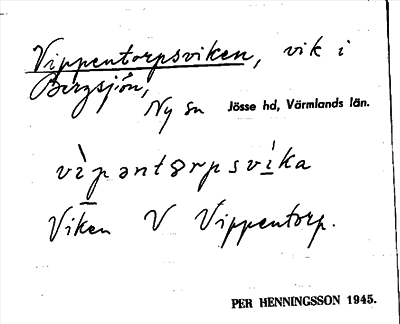 Vippentorpsviken, vik i
Bergsjön,
Ny sn Jösse hd, Värmlands län.
vìpəntɷrpsvíka
Viken V Vippentorp.
PER HENNINGSSON 1945.